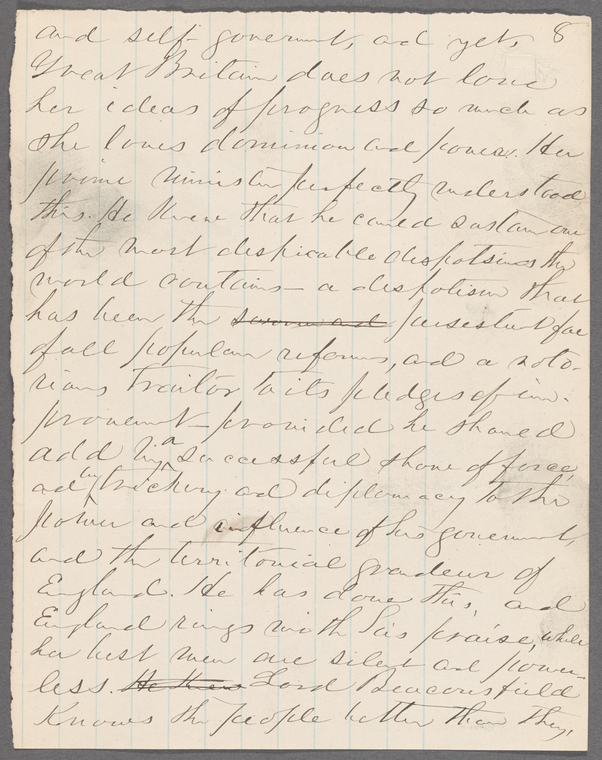 and self-goverment, and yet, 8
Great Britain does not love
her ideas of progress so much as
she loves dominion and power. Her
prime minister perfectly understood
this. He knew that he could sustain one
of the most despicable despotisms the
world contains — a despotism that
has been the persistent foe
of all popular reforms, and a noto-
rious traitor to its pledges of im-
provement — provided he should
add by a successful show of force,
and by trickery and diplomacy to the
power and influence of his goverment,
and the territorial grandeur of
England. He has done this, and
England rings with his praise, while
her best men are silent and power-
less. Lord Beaconsfield
knows the people better than they,